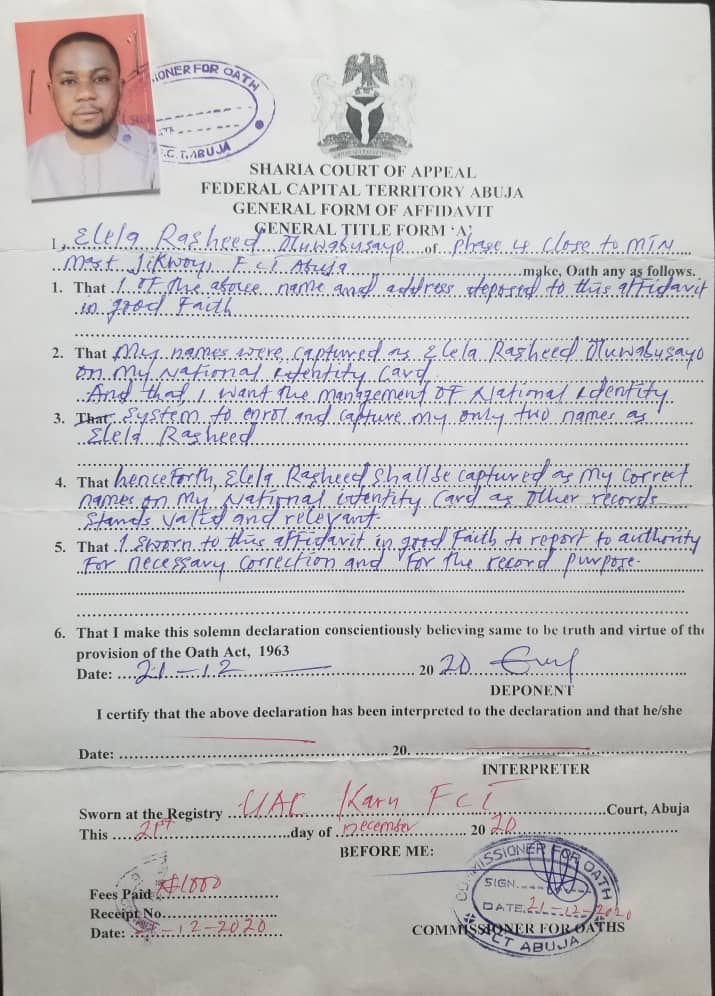 COMMISSIONER FOR OATH
DATE
F.C.T. ABUJA
SHARIA COURT OF APPEAL
FEDERAL CAPITAL TERRITORY ABUJA
GENERAL FORM OF AFFIDAVIT
GENERAL TITLE FORM 'A'
I, Elela Rasheed Oluwabusayo of Phase 4 close to MTN
Mast Jikwoyi, FCT Abuja make, Oath any as follows.
1. That I of the above name and address deposed to this affidavit
in good Faith
2. That My names were captured as Elela Rasheed Oluwabusayo
on My National Identity Card
And that I want the management OF National identity
3. That System to enrol and capture my only two names as
Elela Rasheed
4. That henceforth, Elela Rasheed Shall be captured as My correct
names on My National identity Card as other records
Stands valid and relevant.
5. That I sworn to this affidavit in good Faith to report to authority
For necessary correction and For the record purpose.
6. That I make this solemn declaration conscientiously believing same to be truth and virtue of the
provision of the Oath Act, 1963
Date: 21-12 2020
DEPONENT
I certify that the above declaration has been interpreted to the declaration and that he/she
Date: 20.
INTERPRETER
Sworn at the Registry UAC Karu FCT Court, Abuja
This 21st day of December 2020
BEFORE ME:
COMMISSIONER FOR OATH
SIGN.
DATE 21-12-2020
FCT ABUJA
Fees Paid ₦1000
Receipt No.
Date: 21-12-2020
COMMISSIONER FOR OATHS